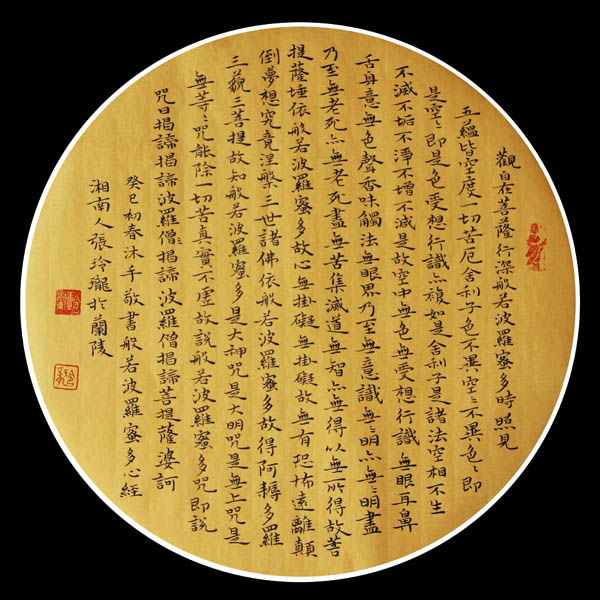 觀自在菩薩行深般若波羅蜜多時照見
五蘊皆空度一切苦厄舍利子色不異空〻不異色〻即
是空〻即是色受想行識亦複如是舍利子是諸法空相不生
不滅不垢不淨不增不減是故空中無色無受想行識無眼耳鼻
舌身意無色聲香味觸法無眼界乃至無意識無〻明亦無〻明盡
乃至無老死亦無老死盡無苦集滅道無智亦無得以無所得故菩
提薩埵依般若波羅蜜多故心無掛礙無掛礙故無有恐怖遠離顛
倒夢想究竟涅槃三世諸佛依般若波羅蜜多故得阿耨多羅
三藐三菩提故知般若波羅蜜多是大神咒是大明咒是無上咒是
無等〻咒能除一切苦真實不虛故說般若波羅蜜多咒即說
咒曰揭諦揭諦波羅僧揭諦波羅僧揭諦菩提薩婆訶
癸巳初春沐手敬書般若波羅蜜多心經
湘南人張玲瓏於蘭陵